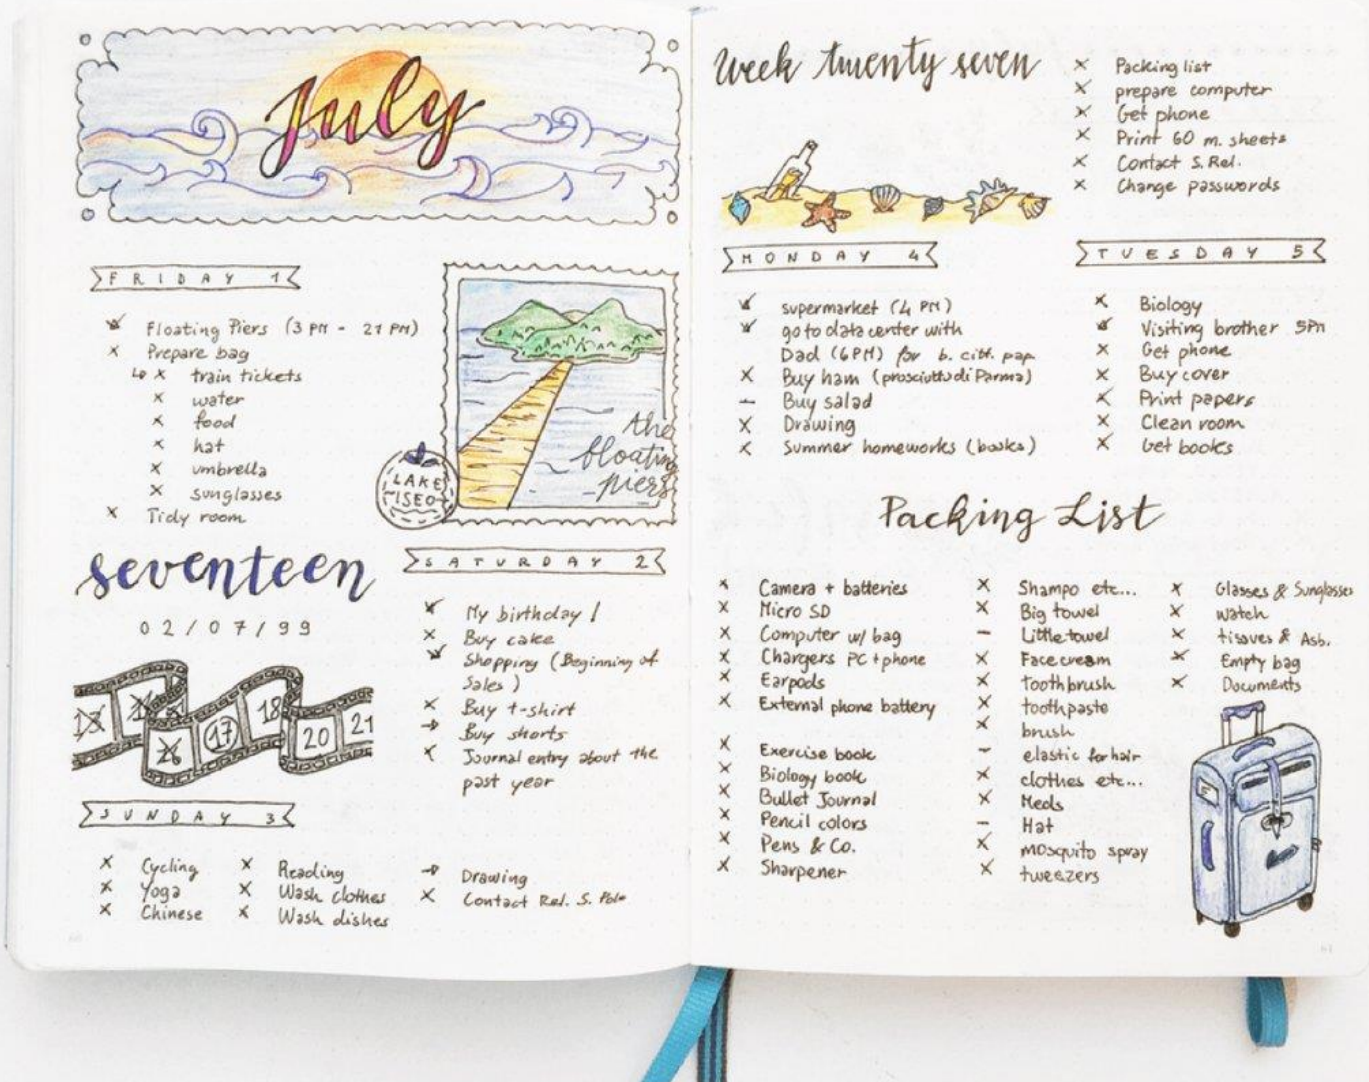 July
FRIDAY 1
Floating Piers (3 PM - 21 PM)
Prepare bag
train tickets
water
food
hat
umbrella
sunglasses
Tidy room
the
floating
piers
LAKE
ISEO
seventeen
02/07/99
15
16
17
18
20
21
SATURDAY 2
My birthday!
Buy cake
Shopping (Beginning of
Sales)
Buy t-shirt
Buy shorts
Journal entry about the
past year
SUNDAY 3
Cycling
Yoga
Chinese
Reading
Wash clothes
Wash dishes
Drawing
Contact Rel. S.
week twenty seven
Packing list
prepare computer
Get phone
Print 60 m. sheets
Contact S. Rel.
Change passwords
MONDAY 4
supermarket (4 PM)
go to data center with
Dad (6PM) for b. citt. pap
Buy ham (prosciutto di Parma)
Buy salad
Drawing
Summer homeworks (books)
TUESDAY 5
Biology
Visiting brother 5PM
Get phone
Buy cover
Print papers
Clean room
Get books
Packing List
Camera + batteries
Micro SD
Computer w/ bag
Chargers PC + phone
Earpods
External phone battery
Exercise book
Biology book
Bullet Journal
Pencil colors
Pens & Co.
Sharpener
Shampo etc...
Big towel
Little towel
Face cream
toothbrush
toothpaste
brush
elastic for hair
clothes etc...
Meds
Hat
mosquito spray
tweezers
Glasses & Sunglasses
watch
tissues & Asb.
Empty bag
Documents